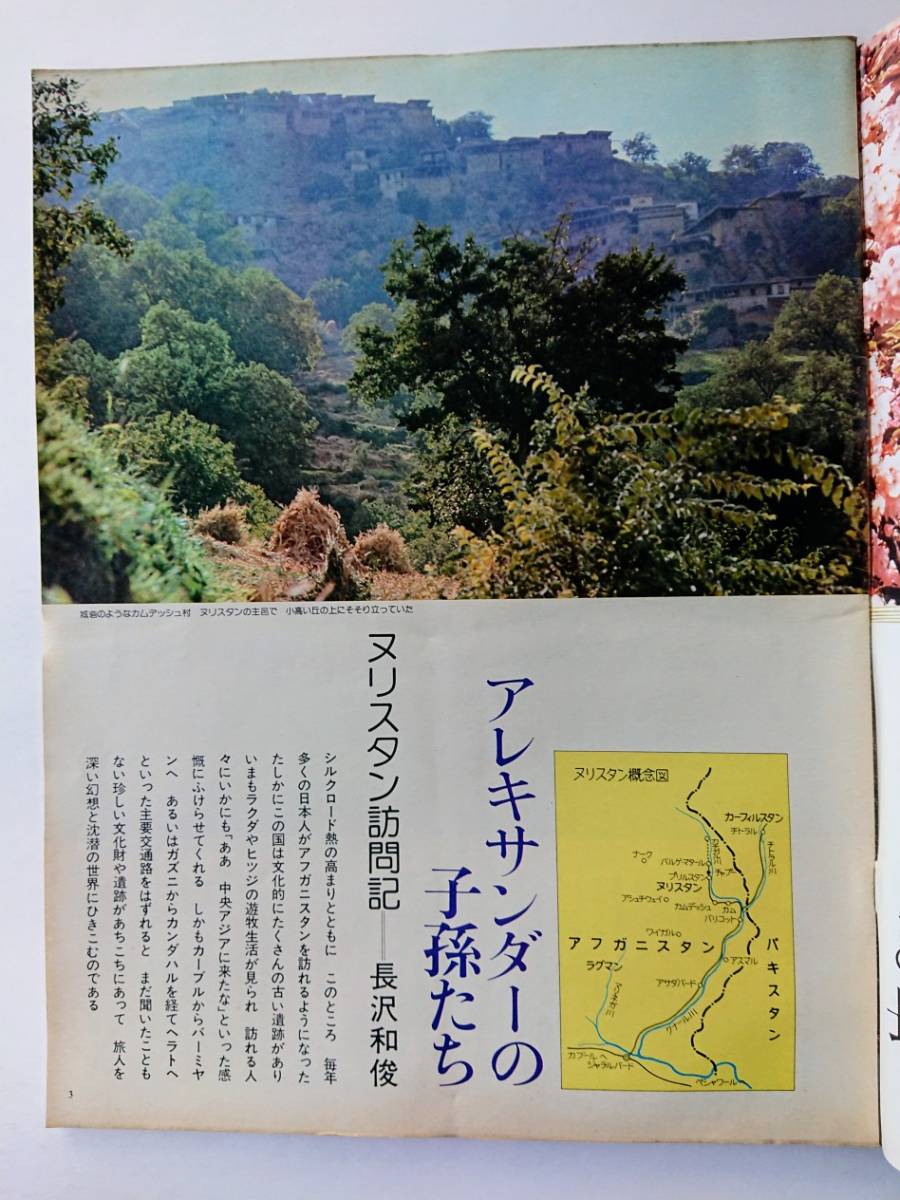 城砦のようなカムデッシュ村　ヌリスタンの主邑で　小高い丘の上にそそり立っていた
アレキサンダーの
子孫たち
ヌリスタン訪問記＝長沢和俊
シルクロード熱の高まりとともに　このところ　毎年
多くの日本人がアフガニスタンを訪れるようになった
たしかにこの国は文化的にたくさんの古い遺跡があり
いまもラクダやヒツジの遊牧生活が見られ　訪れる人
々にいかにも「ああ　中央アジアに来たな」といった感
慨にふけらせてくれる　しかもカーブルからバーミヤ
ンへ　あるいはガズニからカンダハルを経てヘラトへ
といった主要交通路をはずれると　まだ聞いたことも
ない珍しい文化財や遺跡があちこちにあって　旅人を
深い幻想と沈潜の世界にひきこむのである
ヌリスタン概念図
カーフィルスタン
チトラル
チトラル川
ナーク
バルゲ・マタール
チャプー
プリルスタン
ヌリスタン
アシュチウェイ
カムデッシュ
カム
バリコット
ワイガル
アフガニスタン
パキスタン
ラグマン
アスマル
アサダバード
クナール川
カブールへ
ジャララバード
ペシャワール
3